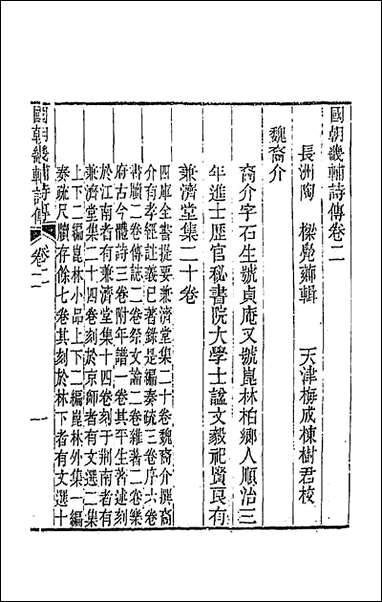 國朝畿輔詩傳卷二
長洲陶 樑鳧薌輯 天津梅成棟樹君校
魏裔介
裔介字石生號貞庵又號崑林柏鄉人順治三
年進士歷官秘書院大學士諡文毅祀賢良有
兼濟堂集二十卷
四庫全書提要兼濟堂集二十卷魏裔介撰裔
介有孝經註義已著錄是編奏疏三卷序六卷
書牘二卷傳誌二卷祭文論二卷雜著二卷樂
府古今體詩三卷附年譜一卷其平生著述刻
於江南者有兼濟堂集十四卷刻于荆南者有
兼濟堂集二十四卷刻於京師者有文選二集
上下二編崑林小品上下二編崑林外集一編
奏疏尺牘存餘七卷其刻於林下者有文選十
國朝畿輔詩傳 卷二 一